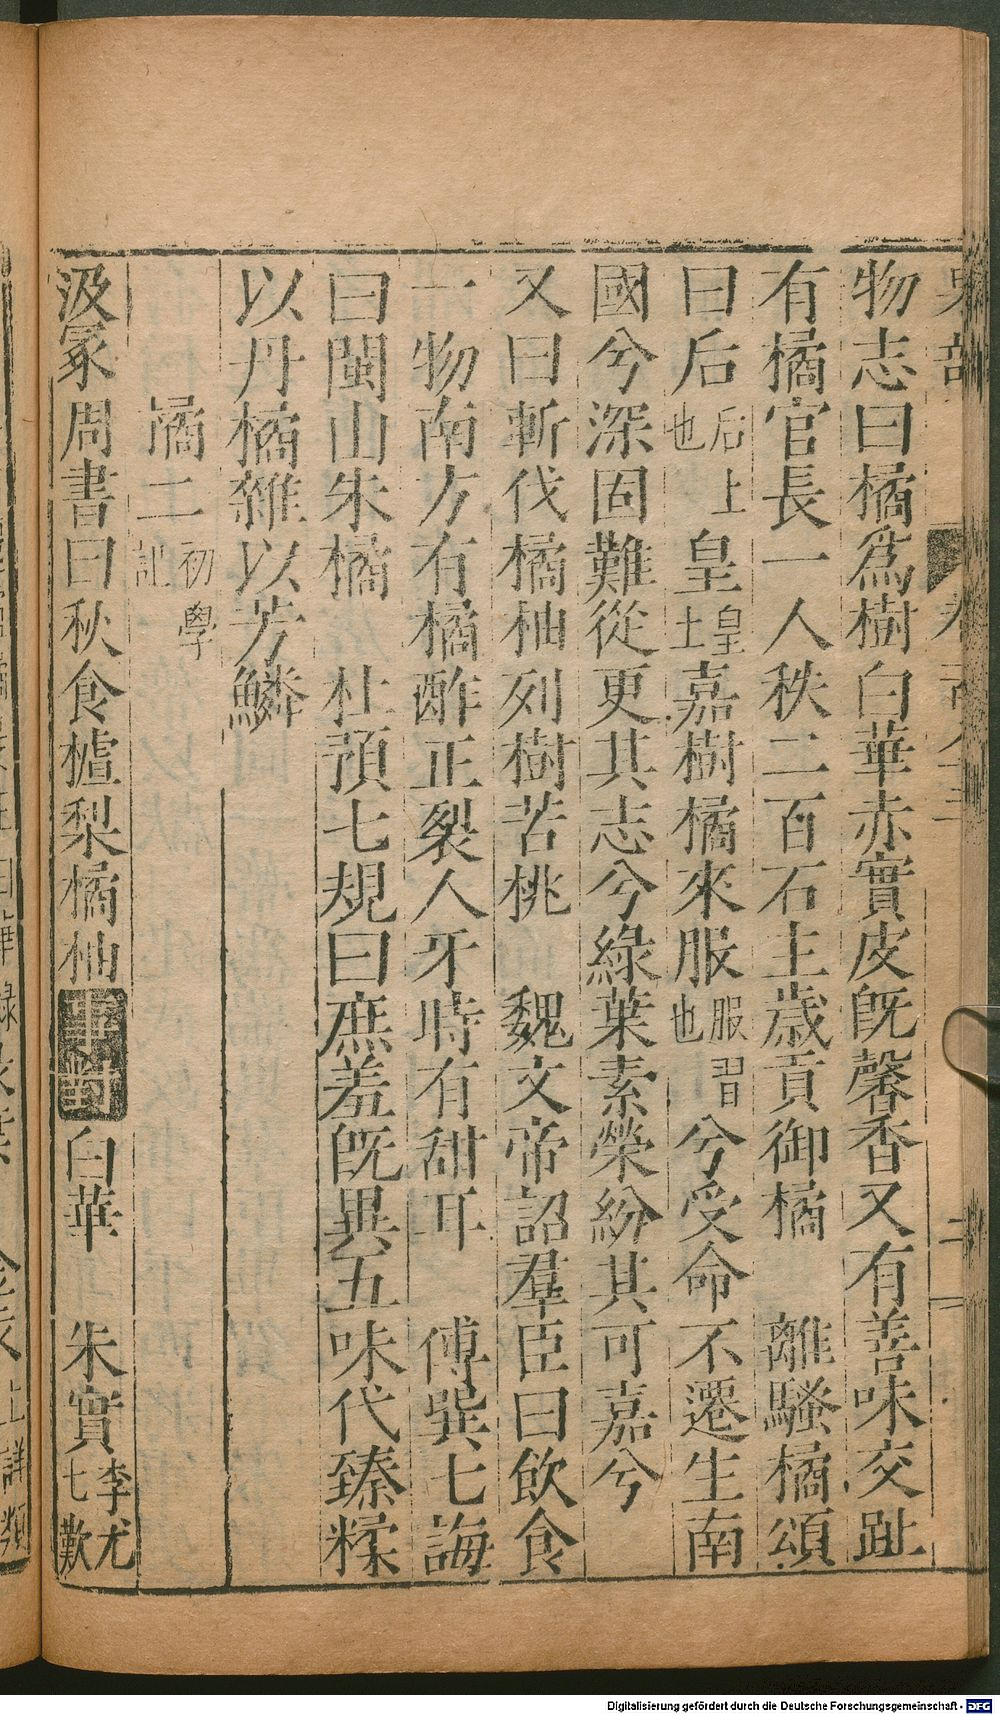 物志曰橘爲樹白華赤實皮旣馨香又有善味交趾
有橘官長一人秩二百石主歲貢御橘 離騷橘頌
曰后后上也皇皇土嘉樹橘來服服習也兮受命不遷生南
國兮深固難從更其志兮綠葉素榮紛其可嘉兮
又曰斬伐橘柚列樹苦桃 魏文帝詔羣臣曰飲食
一物南方有橘酢正裂人牙時有甜耳 傅巽七誨
曰閩山朱橘 杜預七規曰庶羞旣異五味代臻糅
以丹橘雜以芳鱗
橘二初學記
汲冢周書曰秋食樝梨橘柚事對白華 朱實李尤七歎
Digitalisierung gefördert durch die Deutsche Forschungsgemeinschaft - DFG